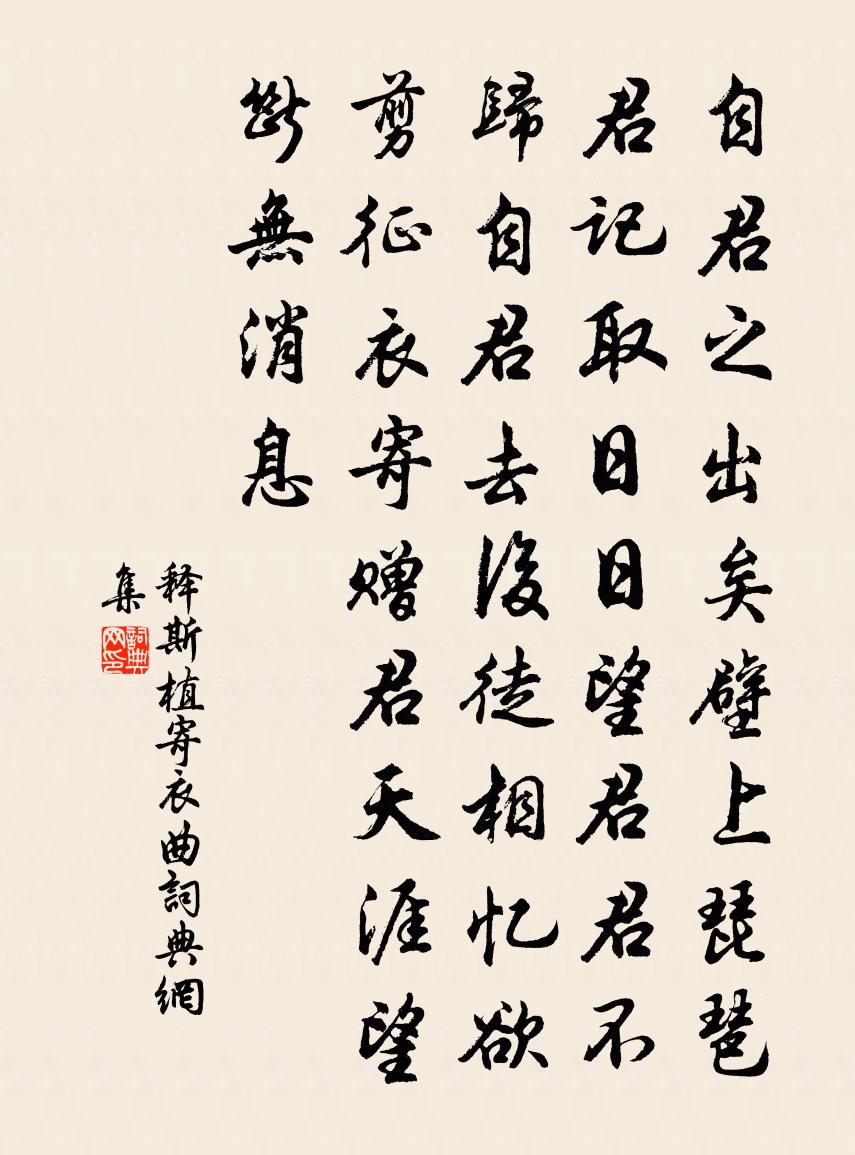 自君之出矣壁上琵琶
君記取日日望君君不
歸自君去後徒相忆欲
剪征衣寄赠君天涯望
斷無消息
释斯植寄衣曲詞典網
集
詞典网印